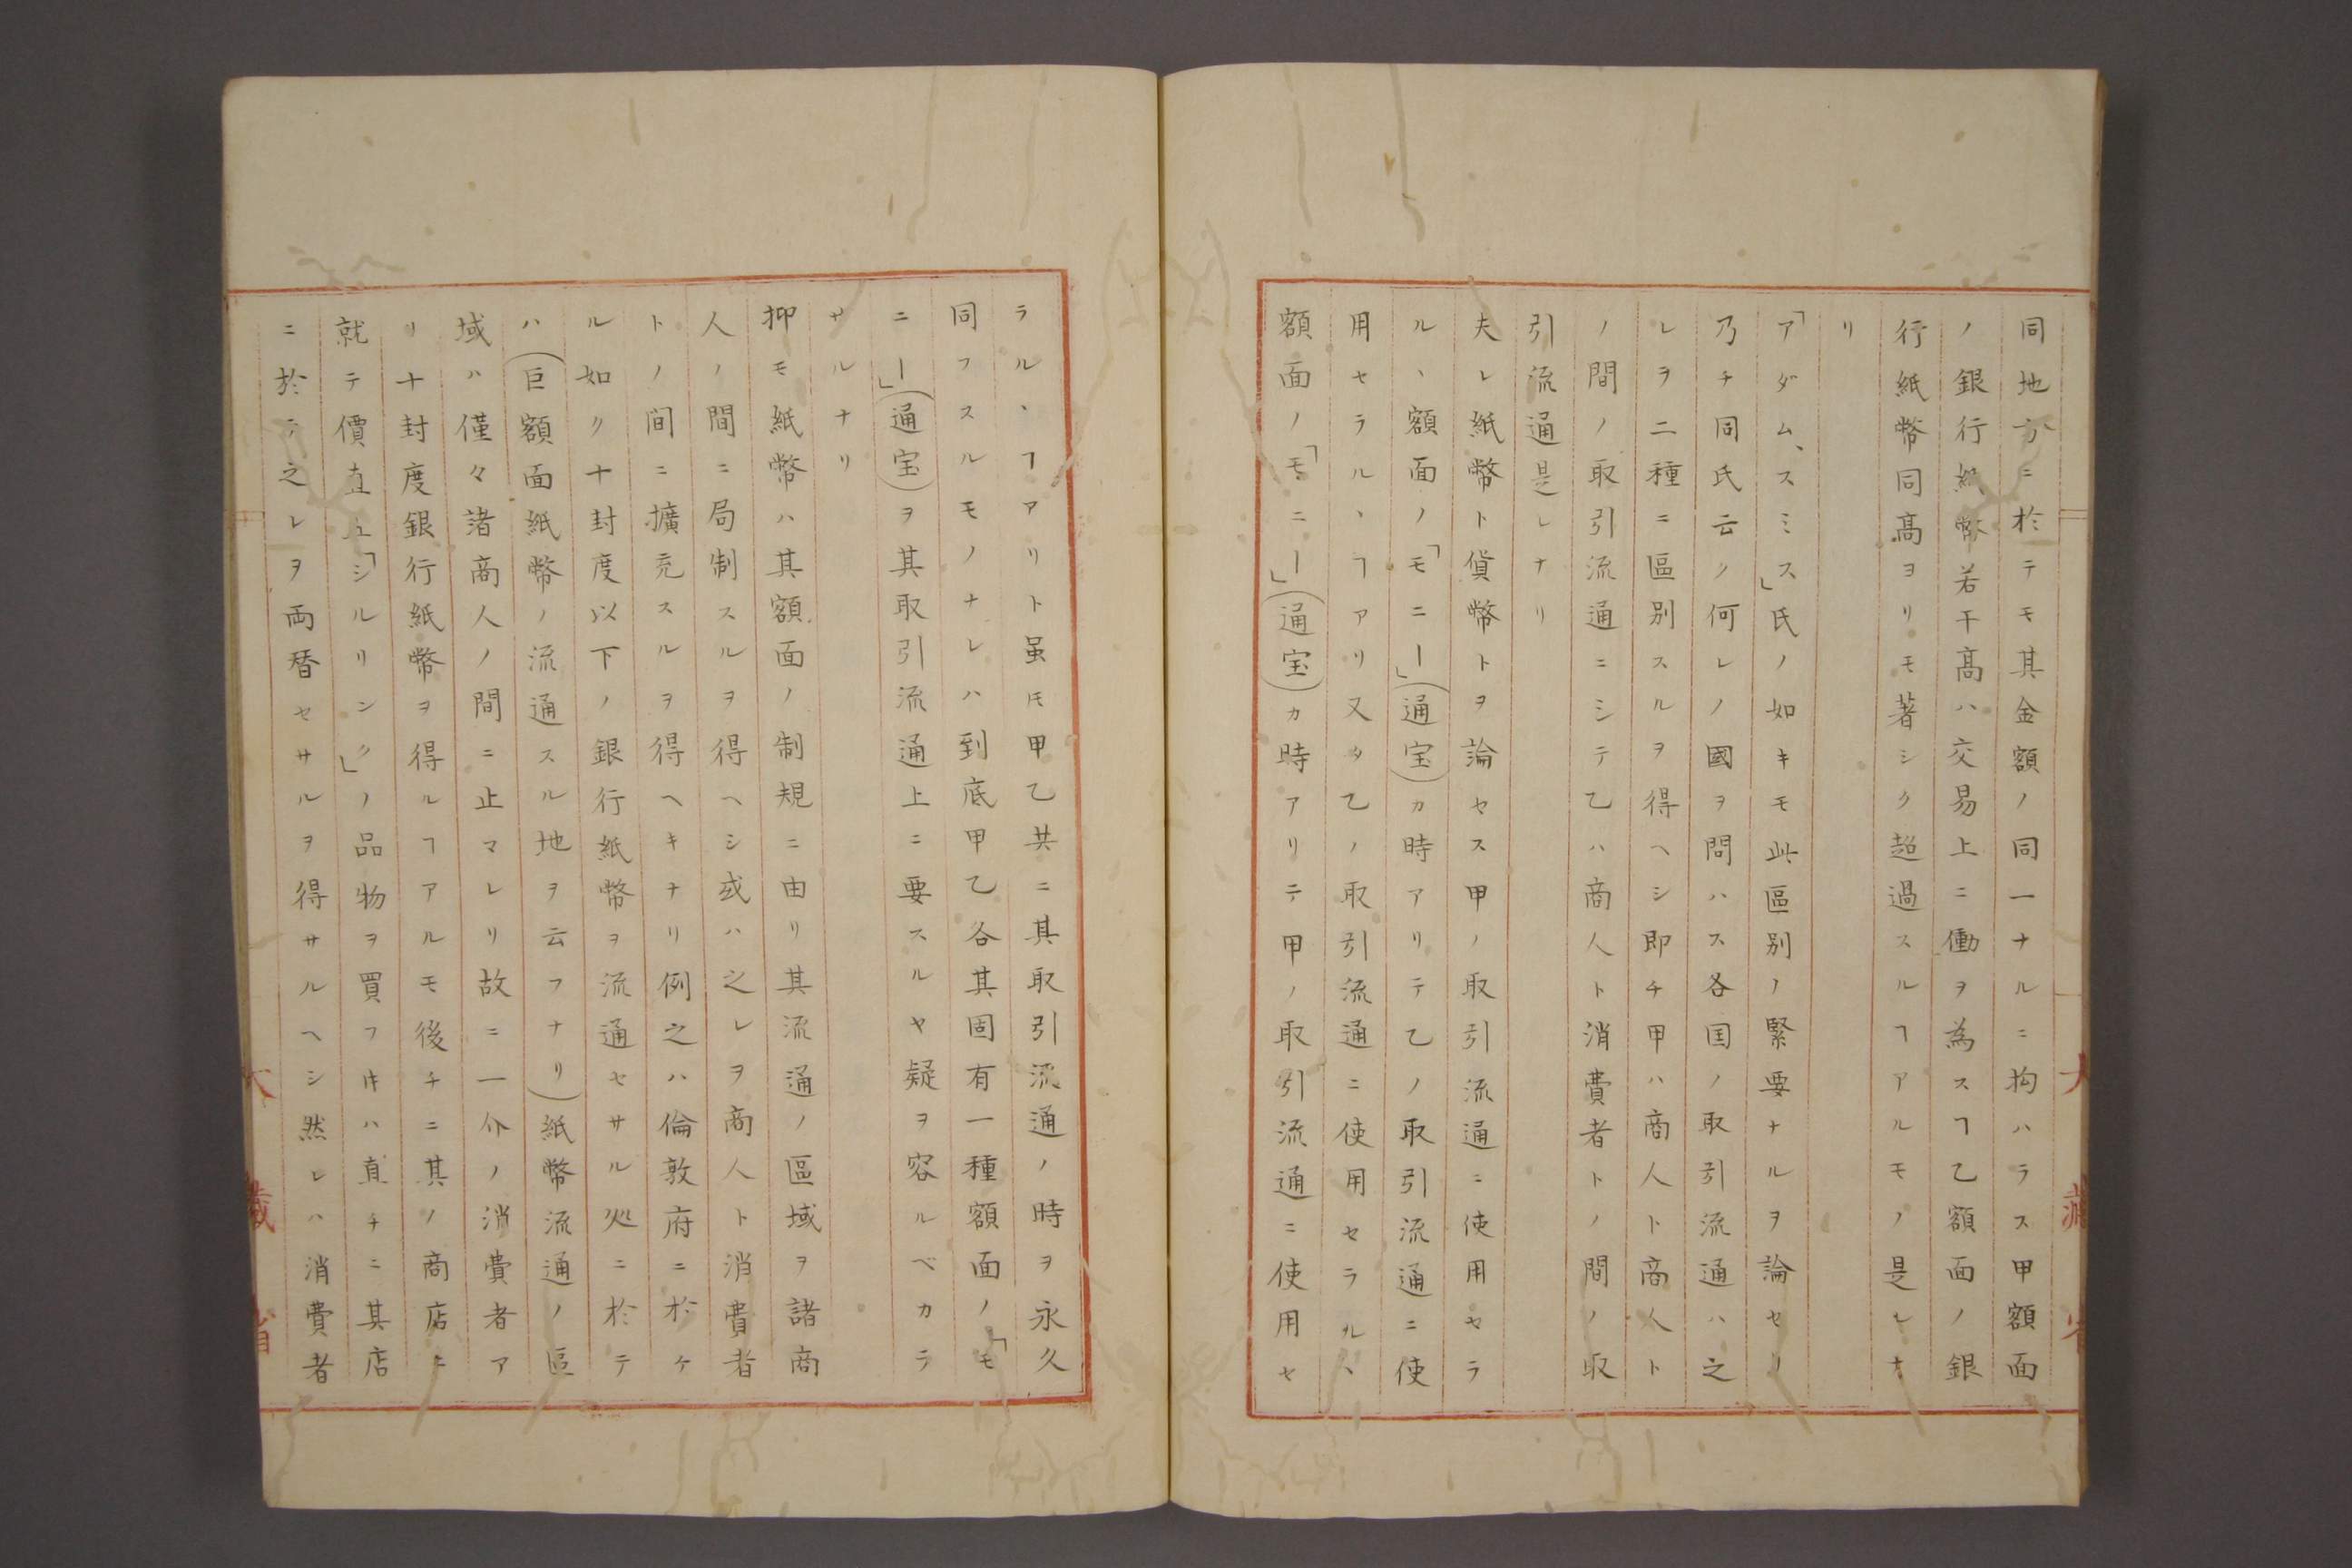 同地方ニ於テモ其金額ノ同一ナルニ拘ハラス甲額面
ノ銀行紙幣若干髙ハ交易上ニ働ヲ為スヿ乙額面ノ銀
行紙幣同髙ヨリモ著シク超過スルヿアルモノ是レナ
リ
「アダム、スミス」氏ノ如キモ此區别ノ緊要ナルヲ論セリ
乃チ同氏云ク何レノ國ヲ問ハス各国ノ取引流通ハ之
レヲ二種ニ區别スルヲ得ヘシ即チ甲ハ商人ト商人ト
ノ間ノ取引流通ニシテ乙ハ商人ト消費者トノ間ノ取
引流通是レナリ
夫レ紙幣ト貨幣トヲ論セス甲ノ取引流通ニ使用セラ
ル、額面ノ「モニー」(通宝)カ時アリテ乙ノ取引流通ニ使
用セラル、ヿアリ又タ乙ノ取引流通ニ使用セラル、
額面ノ「モニー」(通宝)カ時アリテ甲ノ取引流通ニ使用セ
大藏省
ラル、ヿアリト虽𪜈甲乙共ニ其取引流通ノ時ヲ永久
同フスルモノナレハ到底甲乙各其固有一種額面ノ「モ
ニー」(通宝)ヲ其取引流通上ニ要スルヤ疑ヲ容ルベカラ
サルナリ
抑モ紙幣ハ其額面ノ制規ニ由リ其流通ノ區域ヲ諸商
人ノ間ニ局制スルヲ得ヘシ或ハ之レヲ商人ト消費者
トノ间ニ擴充スルヲ得ヘキナリ例之ハ倫敦府ニ於ケ
ル如ク十封度以下ノ銀行紙幣ヲ流通セサル処ニ於テ
ハ(巨額面紙幣ノ流通スル地ヲ云フナリ)紙幣流通ノ區
域ハ僅々諸商人ノ間ニ止マレリ故ニ一介ノ消費者ア
リ十封度銀行紙幣ヲ得ルヿアルモ後チニ其ノ商店ニ
就テ價直五「シルリンク」ノ品物ヲ買フ𪜈ハ直チニ其店
ニ於テ之レヲ両替セサルヲ得サルヘシ然レハ消費者
大藏省